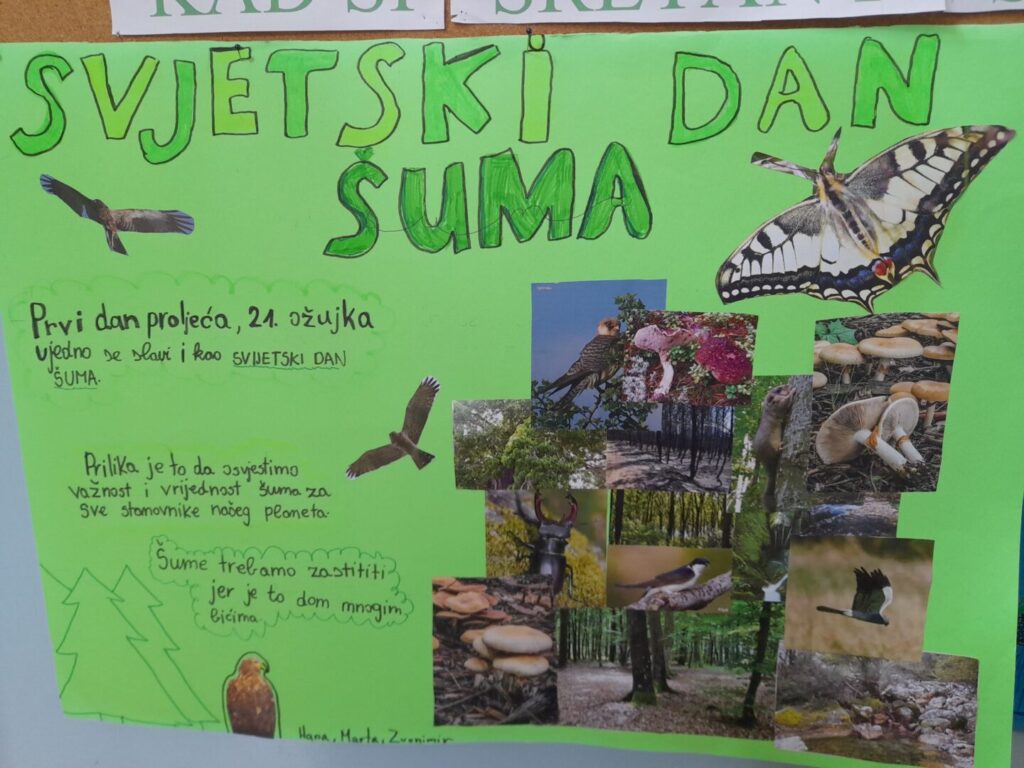 KAD SI SRETAN
SVJETSKI DAN
ŠUMA
Prvi dan proljeća, 21. ožujka
ujedno se slavi i kao SVIJETSKI DAN
ŠUMA.
Prilika je to da osvjestimo
važnost i vrijednost šuma za
sve stanovnike našeg planeta.
Šume trebamo zaštititi
jer je to dom mnogim
bićima.
Hana, Marta, Zvonimir